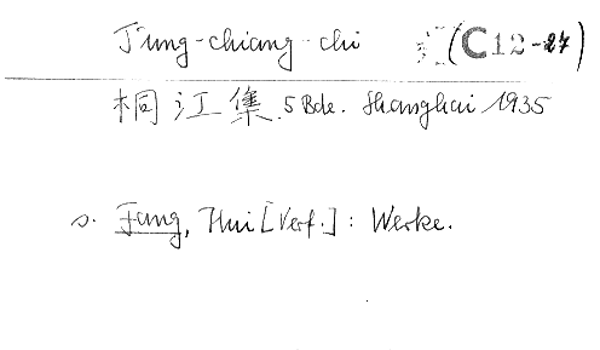 T'ung-chiang-chi (C12-27)
桐江集. 5 Bde. Shanghai 1935
s. Fang, Hui [Verf.] : Werke.